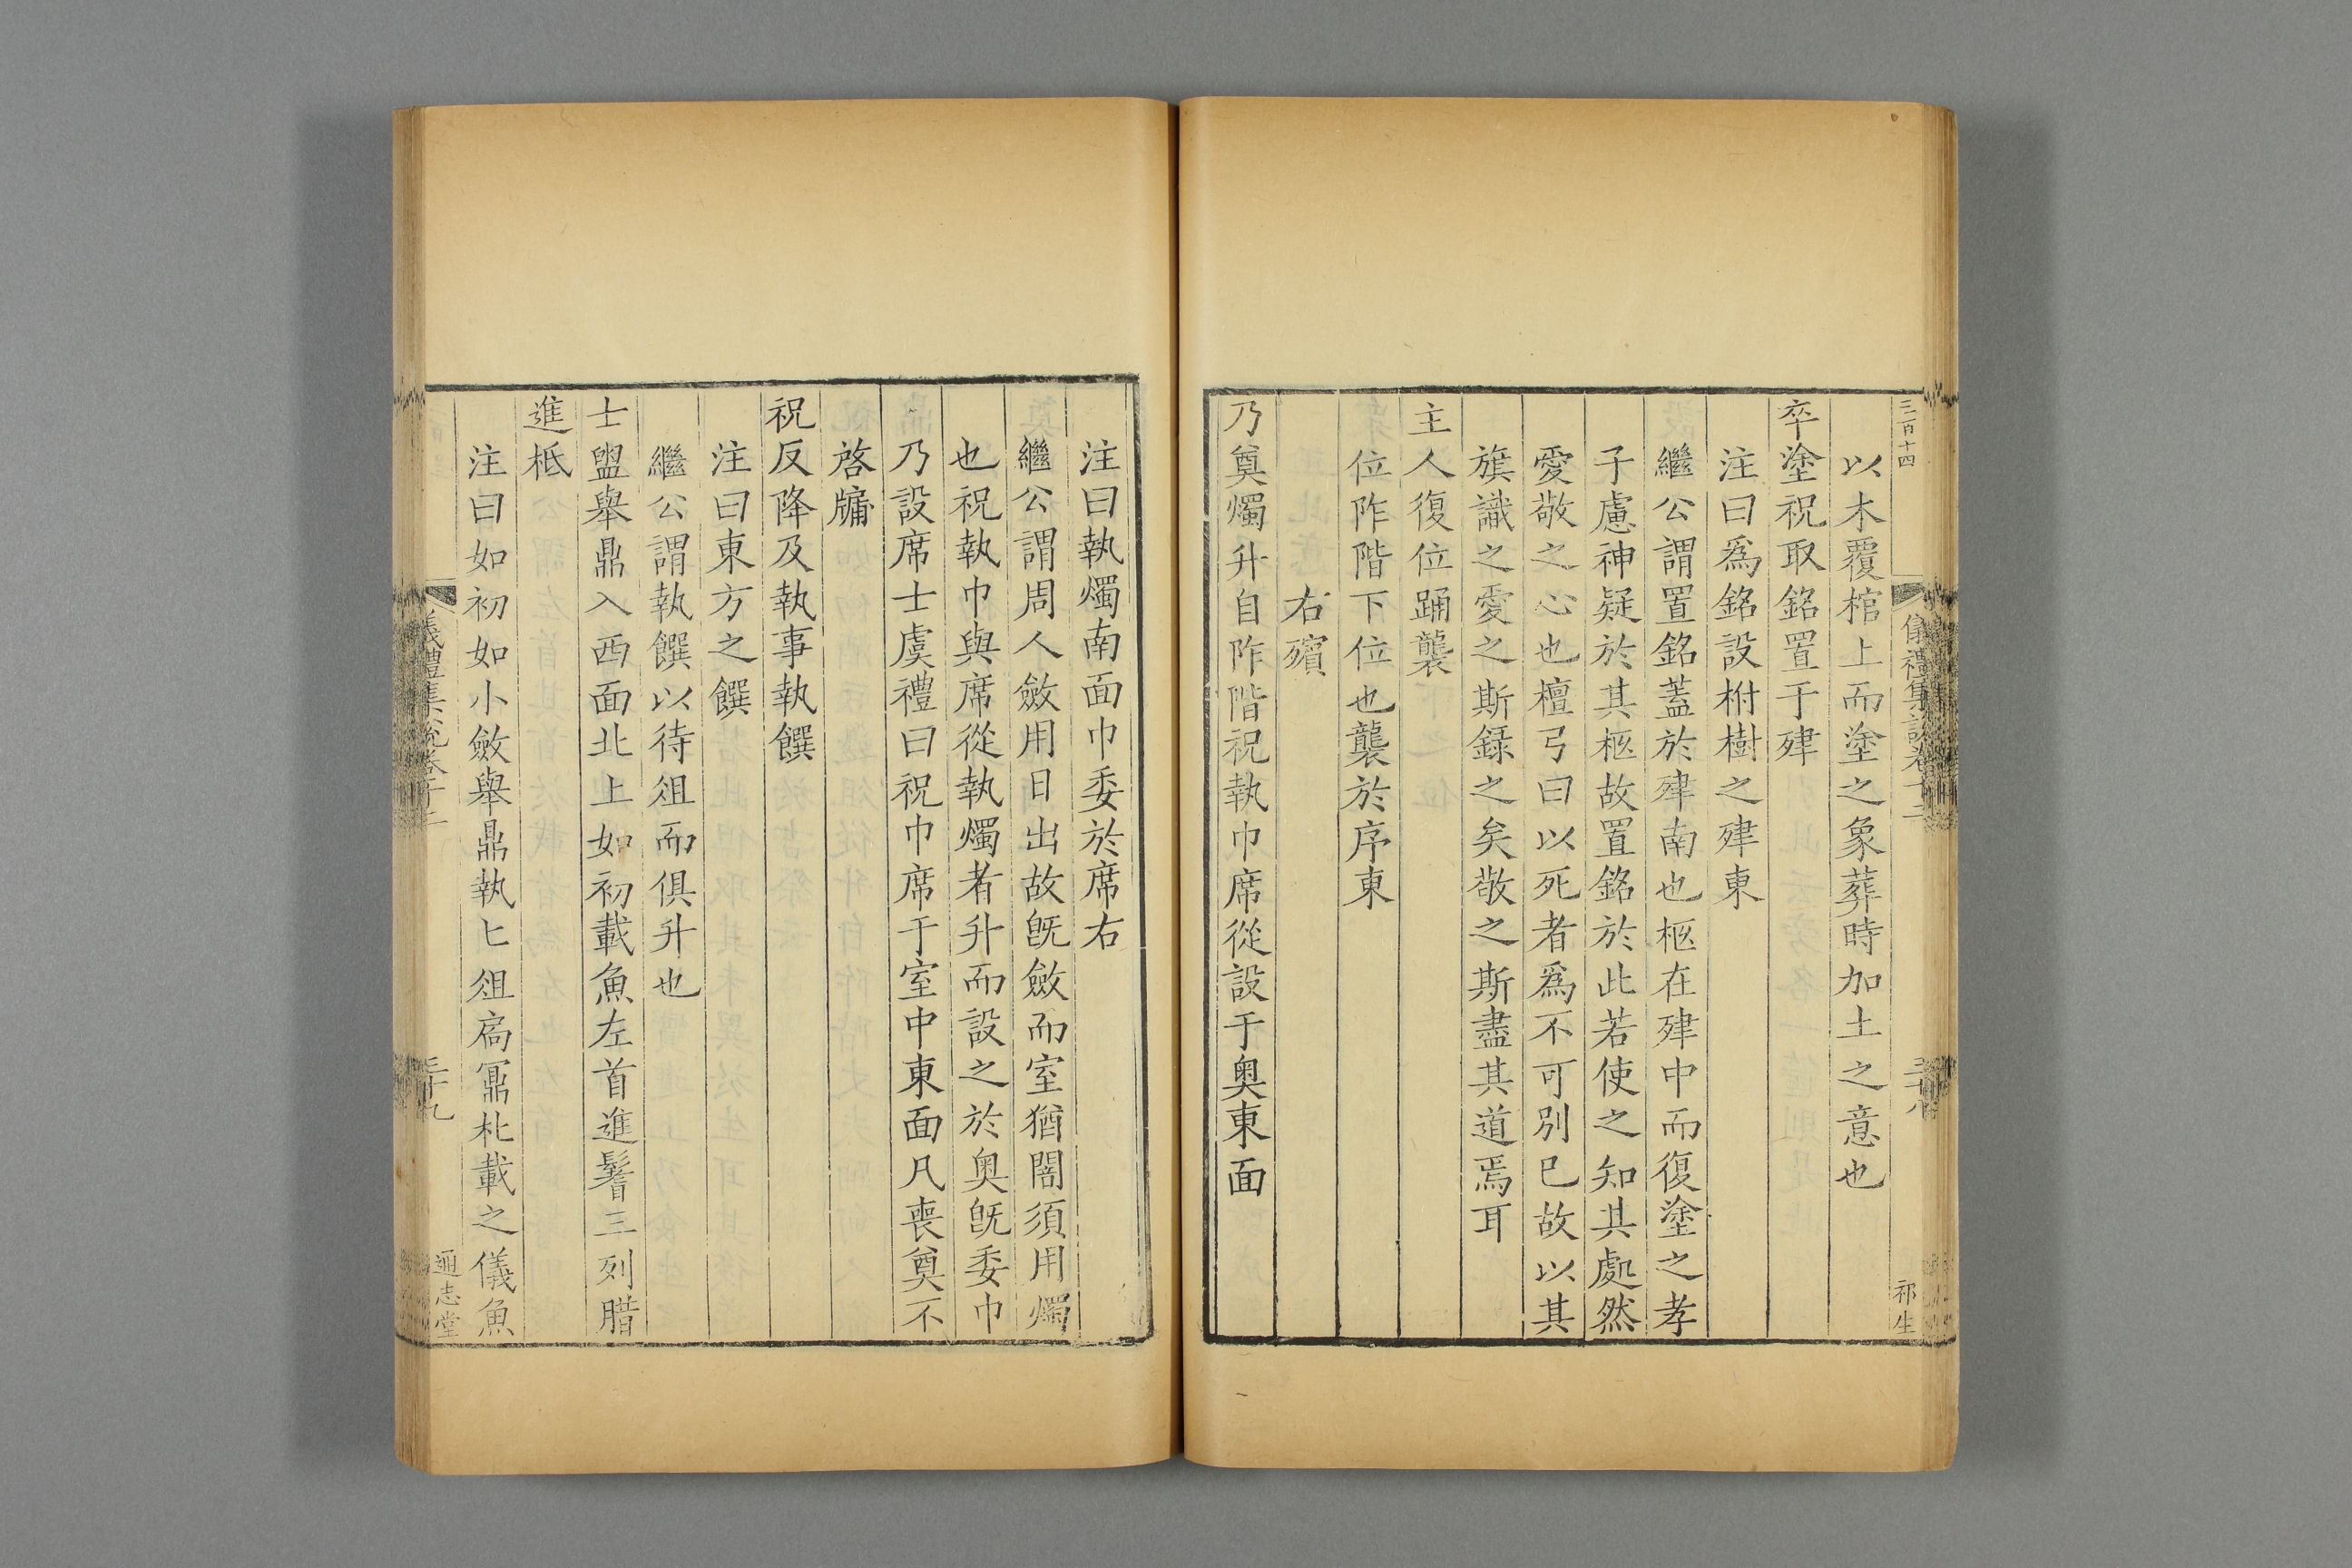 三百十四
儀禮集說卷十二
三十八
祁生
以木覆棺上而塗之象葬時加土之意也
卒塗祝取銘置于肂
注曰爲銘設柎樹之肂東
繼公謂置銘蓋於肂南也柩在肂中而復塗之孝
子慮神疑於其柩故置銘於此若使之知其處然
愛敬之心也檀弓曰以死者爲不可別已故以其
旗識之愛之斯録之矣敬之斯盡其道焉耳
主人復位踊襲
位阼階下位也襲於序東
右殯
乃奠燭升自阼階祝執巾席從設于奧東面
注曰執燭南面巾委於席右
繼公謂周人斂用日出故旣斂而室猶闇須用燭
也祝執巾與席從執燭者升而設之於奥旣委巾
乃設席士虞禮曰祝巾席于室中東面凡喪奠不
啓牖
祝反降及執事執饌
注曰東方之饌
繼公謂執饌以待俎而俱升也
士盥舉鼎入西面北上如初載魚左首進鬐三列腊
進柢
注曰如初如小斂舉鼎執匕俎扃鼏朼載之儀魚
儀禮集說卷十二
三十九
通志堂